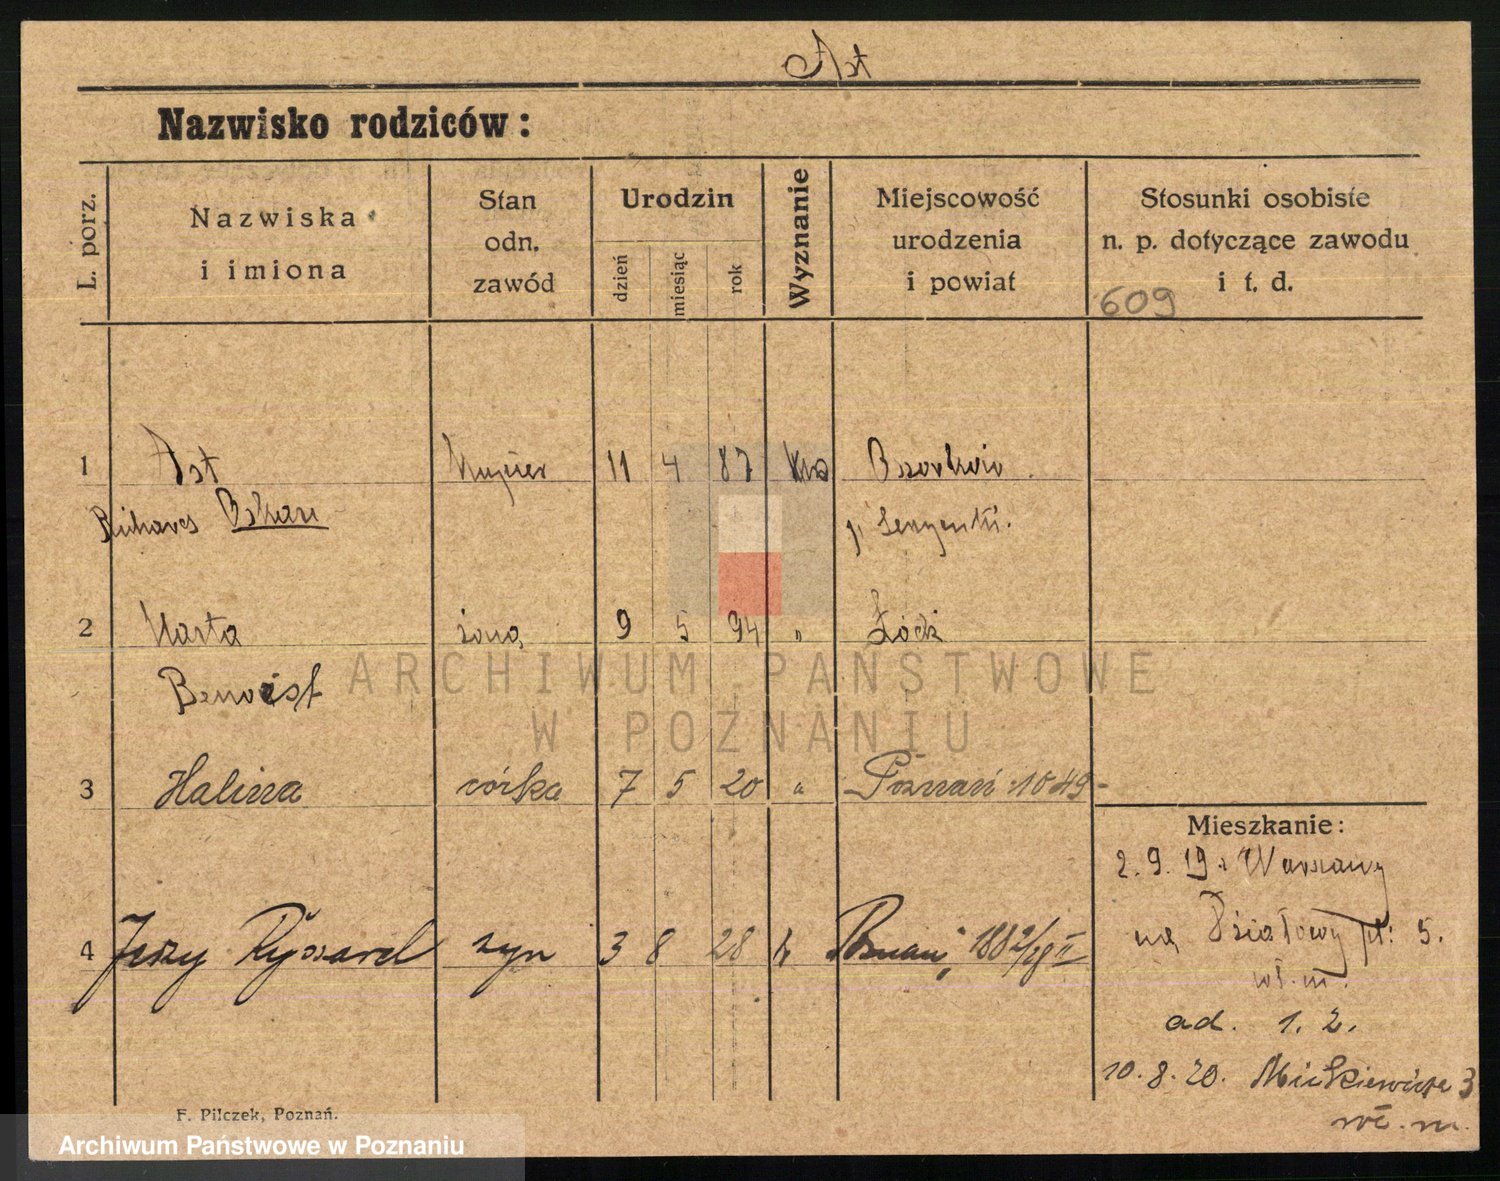 Ast
Nazwisko rodziców:
L. porz.
Nazwiska
i imiona
Stan
odn.
zawód
Urodzin
dzień
miesiąc
rok
Wyznanie
Miejscowość
urodzenia
i powiat
Stosunki osobiste
n. p. dotyczące zawodu
i t. d.
609
1 Ast 11 4 87
Oskar
2 Marta żona 9 5 94 " Łódź
Benoist
3 Halina córka 7 5 20 " Poznań 1049-
Mieszkanie:
2. 9. 19 z Warszawy
na Działowy pl: 5.
wł. m.
4 Jerzy Ryszard syn 3 8 28 Poznań,
ad. 1. 2.
10. 8. 20. Mickiewicza 3
wł. m.
F. Pilczek, Poznań.
ARCHIWUM PAŃSTWOWE
W POZNANIU
Archiwum Państwowe w Poznaniu